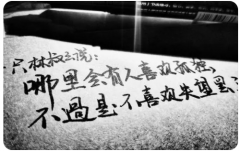 只林叔云说：
哪里会有人喜欢孤独，
不過是不喜欢失望罢